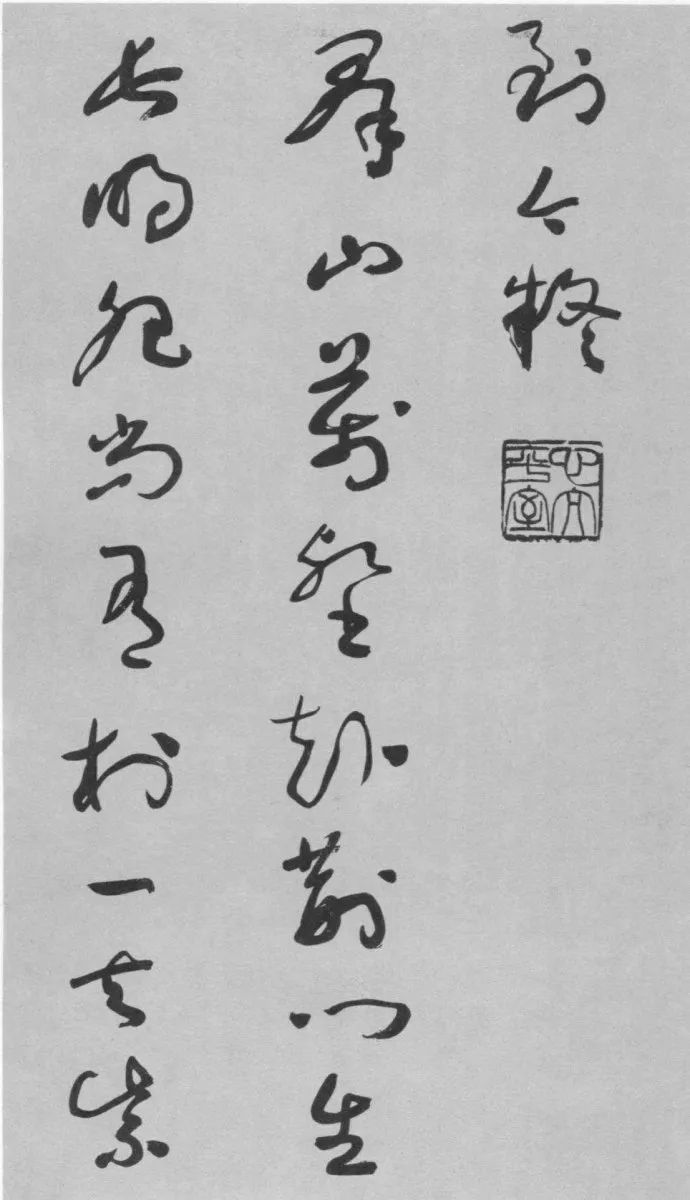 到今疑
羣山萬壑赴荊門生
長明妃尚有村一去紫